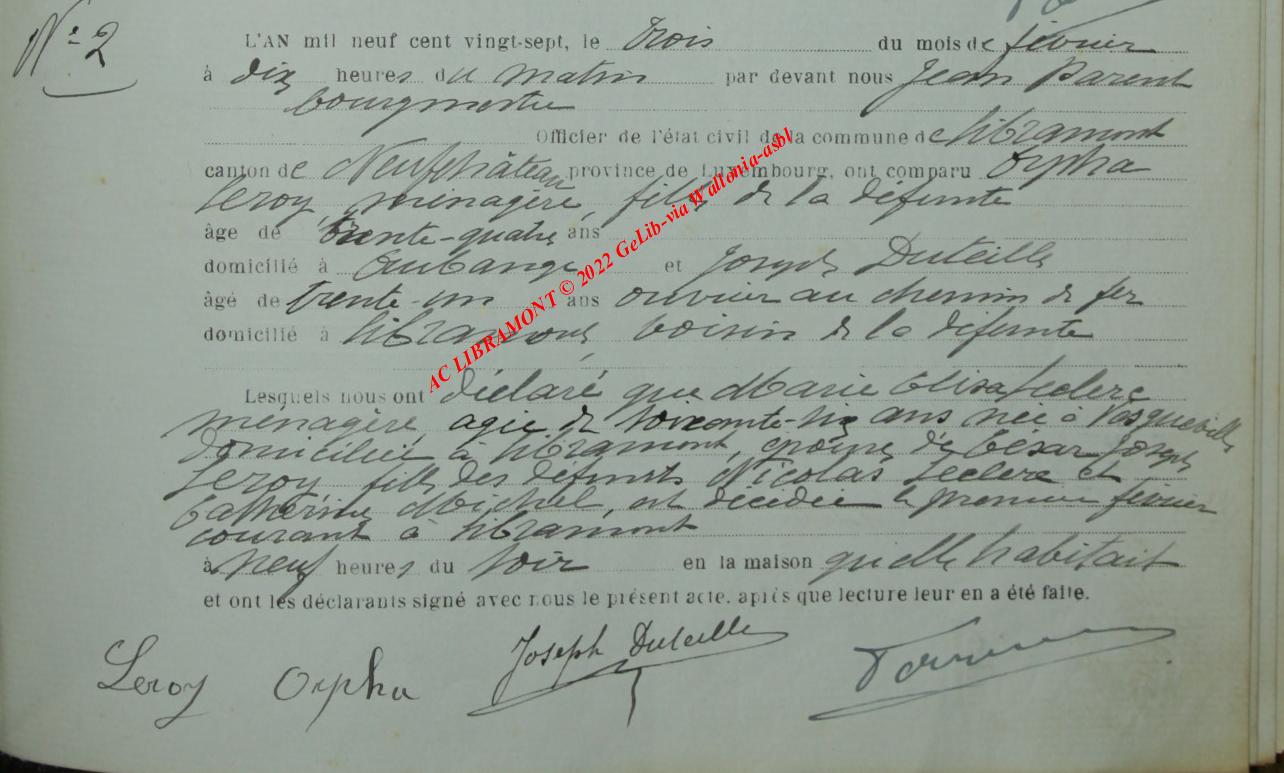 N° 2
L'AN mil neuf cent vingt-sept, le trois du mois de février
à dix heures du matin par devant nous Jean Parent
bourgmestre
Officier de l'état civil de la commune de Libramont
canton de Neufchâteau province de Luxembourg, ont comparu Orpha
Leroy, ménagère, fille de la défunte
âgé de trente-quatre ans
domicilié à Aubange et Joseph Duteille
âgé de trente-un ans ouvrier au chemin de fer
domicilié à Libramont, voisin de la défunte
Lesquels nous ont déclaré que Marie Elisa Leclerc
ménagère, agée de soixante-six ans née à Vesqueville
domiciliée à Libramont, épouse de César Joseph
Leroy fille des défunts Nicolas Leclerc et
Catherine Michel, est décédée le premier février
courant à Libramont
à neuf heures du soir en la maison qu'elle habitait
et ont les déclarants signé avec nous le présent acte, après que lecture leur en a été faite.
Leroy Orpha Joseph Duteille
AC LIBRAMONT © 2022 GeLib-via Wallonia-asbl